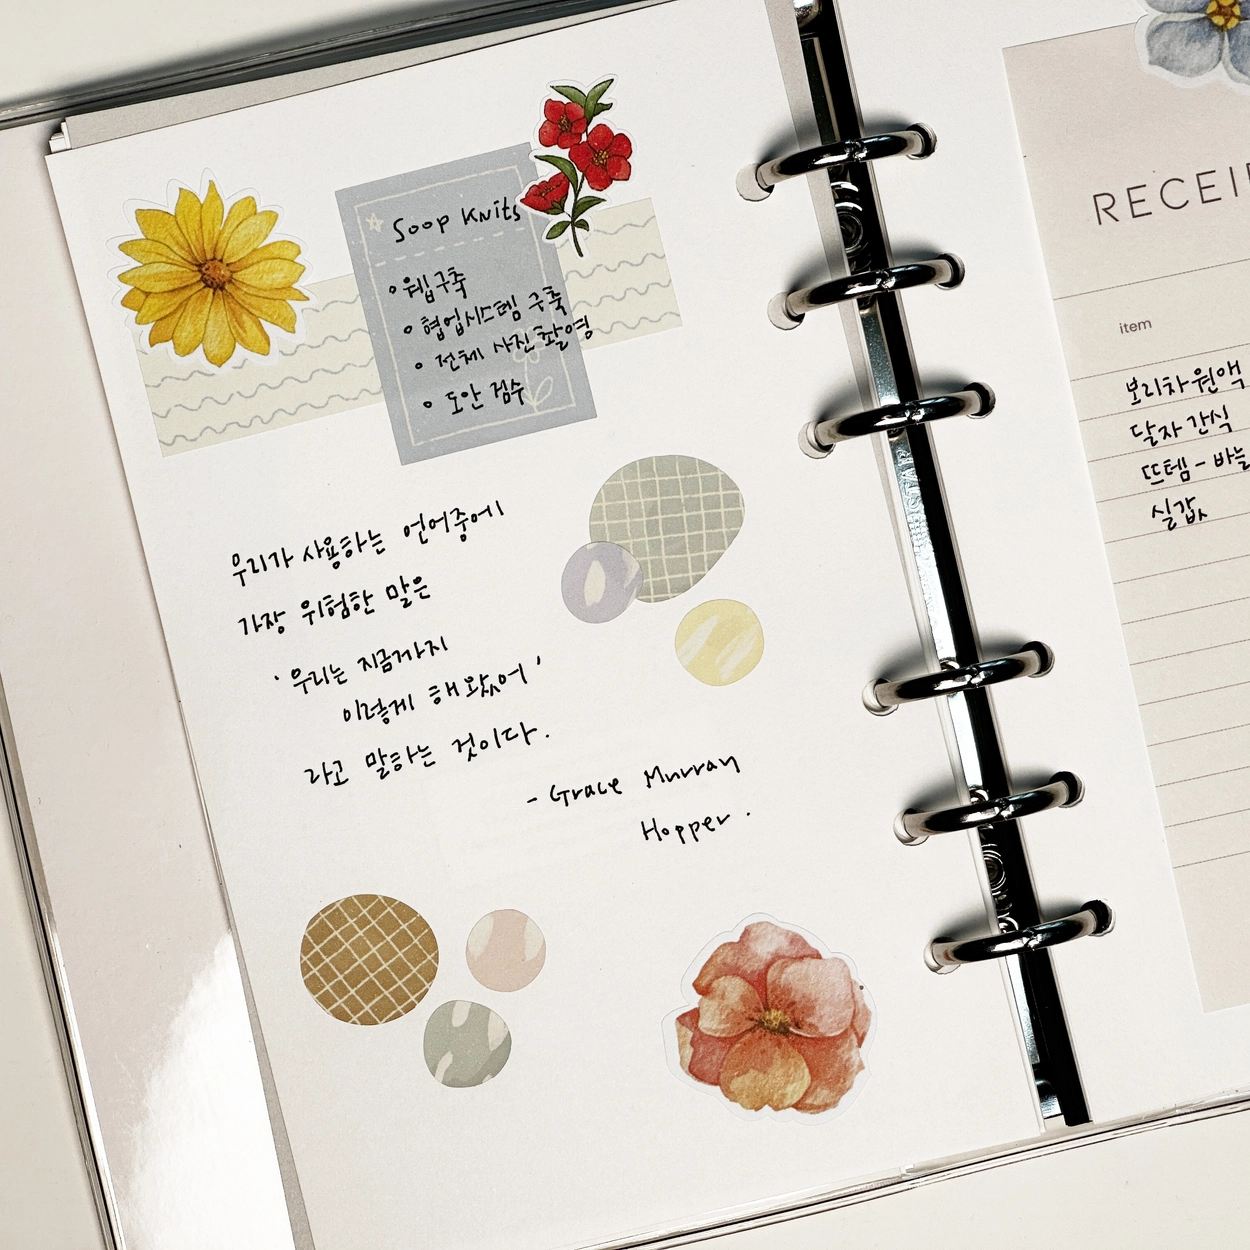 Soop Knits
• 웹구축
• 협업시스템 구축
• 전체 사진 촬영
• 도안 검수
우리가 사용하는 언어중에
가장 위험한 말은
'우리는 지금까지
이렇게 해 왔어'
라고 말하는 것이다.
- Grace Murray
Hopper.
RECEI
item
보리차 원액
달자 간식
뜨템 - 바늘
실값